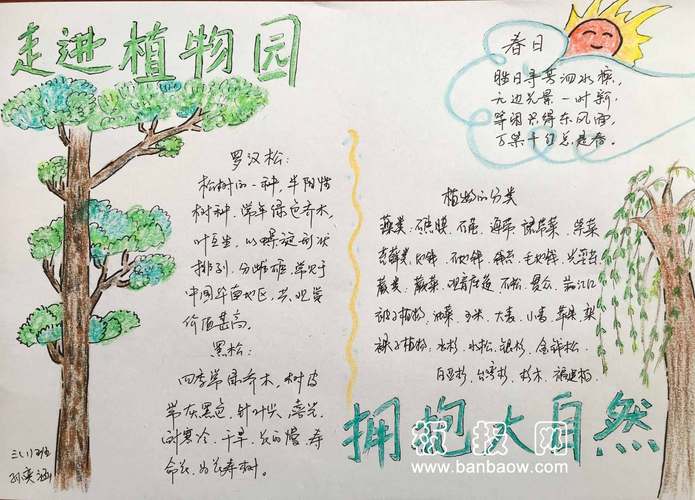 走进植物园
春日
胜日寻芳泗水滨,
无边光景一时新,
等闲识得东风面,
万紫千红总是春。
罗汉松:
松树的一种,半阴性
树种,常年绿色乔木,
叶互生,以螺旋形状
排列,分雌雄,常见于
中国华南地区,其观赏
价值甚高。
黑松:
四季常绿乔木,树皮
带灰黑色,针叶尖,喜光,
耐寒冷、干旱,花的慢,寿
命长,为长寿树。
植物的分类
藻类:石莼、海带、绿紫菜、紫菜
苔藓类:地钱、毛地钱
蕨类:蕨菜、观音座莲、石松、
被子植物:油菜、玉米、大麦、小麦、苹果、梨
裸子植物:水杉、水松、银杉、金钱松、
白豆杉、台湾杉、杉木、福建柏
拥抱大自然
三(1)班
板报网
www.banbaow.com